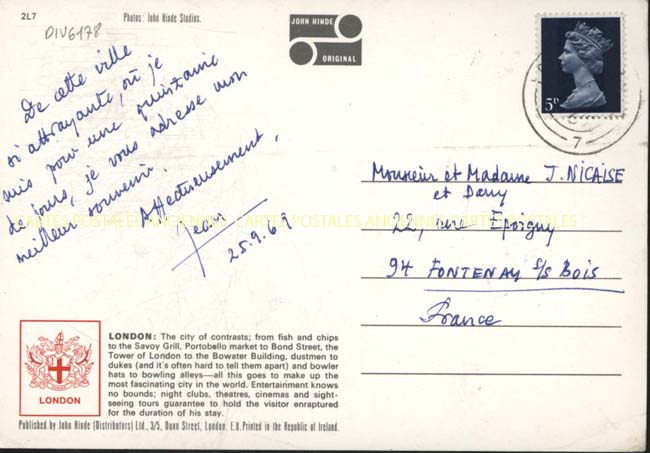 2L7
Photos: John Hinde Studios.
DIV6178
JOHN HINDE
ORIGINAL
5D
7
De cette ville
si attrayante, où je
suis pour une quinzaine
de jours, je vous adresse mon
meilleur souvenir.
Affectueusement,
Jean
25.9.69
Monsieur et Madame J. NICAISE
et Dany
22, rue Epoigny
94 FONTENAY s/s Bois
France
CARTES POSTALES ANCIENNES CARTES POSTALES ANCIENNES CARTES POSTALES
LONDON
LONDON: The city of contrasts; from fish and chips
to the Savoy Grill, Portobello market to Bond Street, the
Tower of London to the Bowater Building, dustmen to
dukes (and it's often hard to tell them apart) and bowler
hats to bowling alleys—all this goes to make up the
most fascinating city in the world. Entertainment knows
no bounds; night clubs, theatres, cinemas and sight-
seeing tours guarantee to hold the visitor enraptured
for the duration of his stay.
Published by John Hinde (Distributors) Ltd., 3/5, Dunn Street, London. E.8. Printed in the Republic of Ireland.